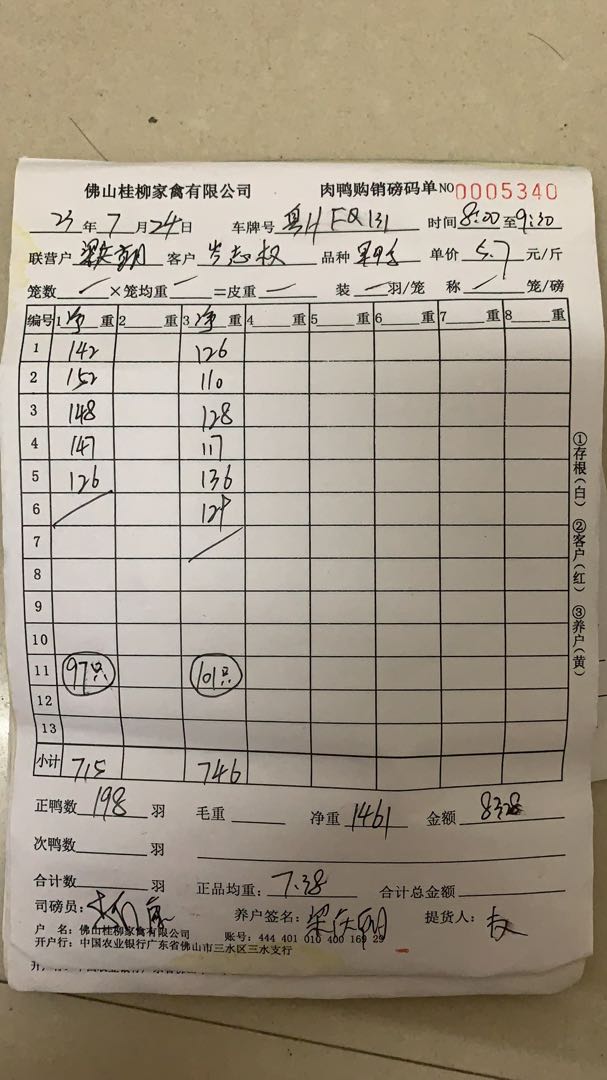 佛山桂柳家禽有限公司 肉鸭购销磅码单 NO 0005340
23 年 7 月 24 日 车牌号 粤H EQ131 时间 8:00 至 9:30
联营户 客户 岑志权 品种 单价 5.7 元/斤
笼数 ×笼均重 =皮重 装 羽/笼 称 笼/磅
编号 1 净 重 2 重 3 净 重 4 重 5 重 6 重 7 重 8 重
1 142 126
2 152 110
3 148 128
4 147 117
5 126 136
6 129
7
8
9
10
11 97只 101只
12
13
小计 715 746
①存根(白) ②客户(红) ③养户(黄)
正鸭数 198 羽 毛重 净重 1461 金额 8328
次鸭数 羽
合计数 羽 正品均重: 7.38 合计总金额
司磅员: 养户签名: 提货人: 权
户 名: 佛山桂柳家禽有限公司 账号: 444 401 010 400 169 29
开户行: 中国农业银行广东省佛山市三水区三水支行